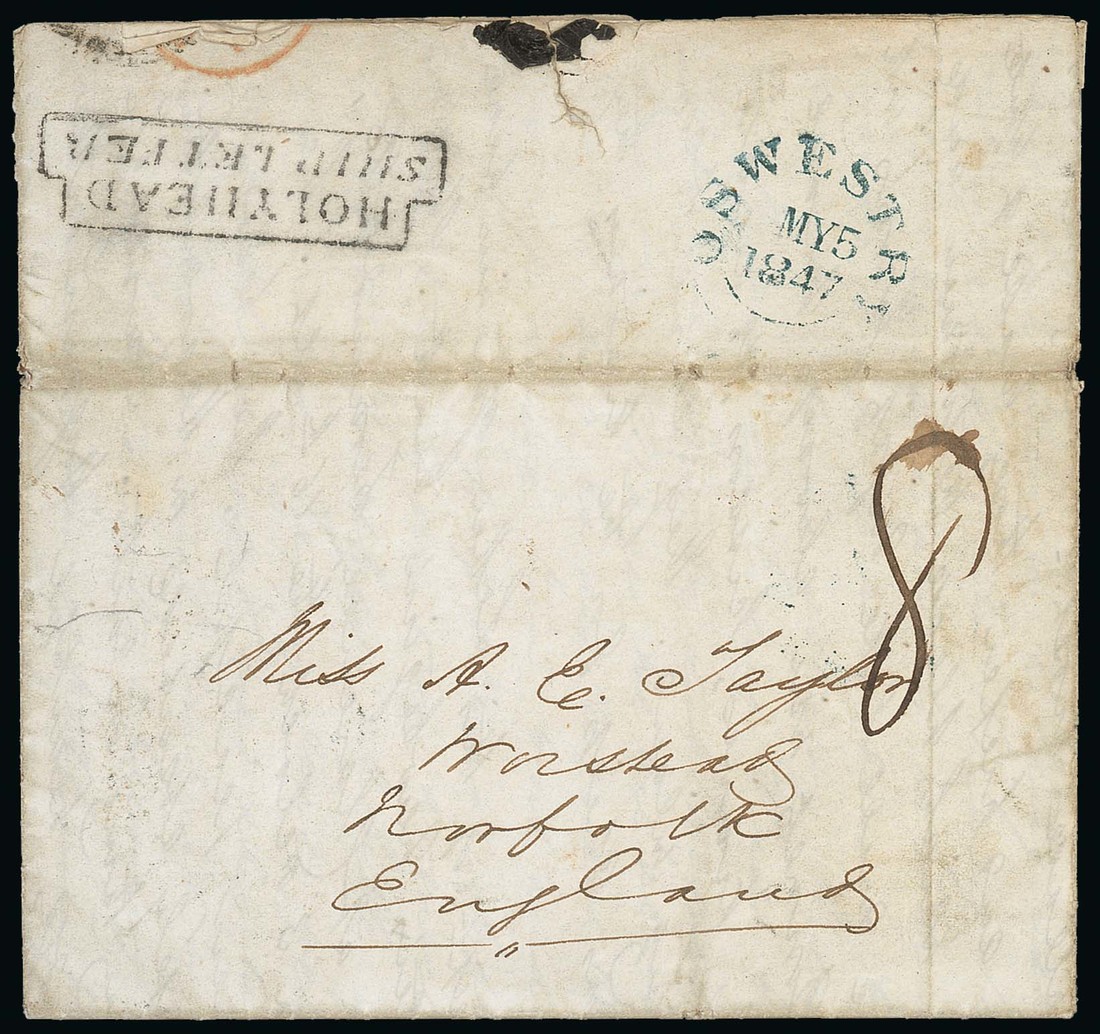 HOLYHEAD
SHIP LETTER
OSWESTRY
MY 5
1847
8
Miss A. E. Taylor
Worstead
Norfolk
England